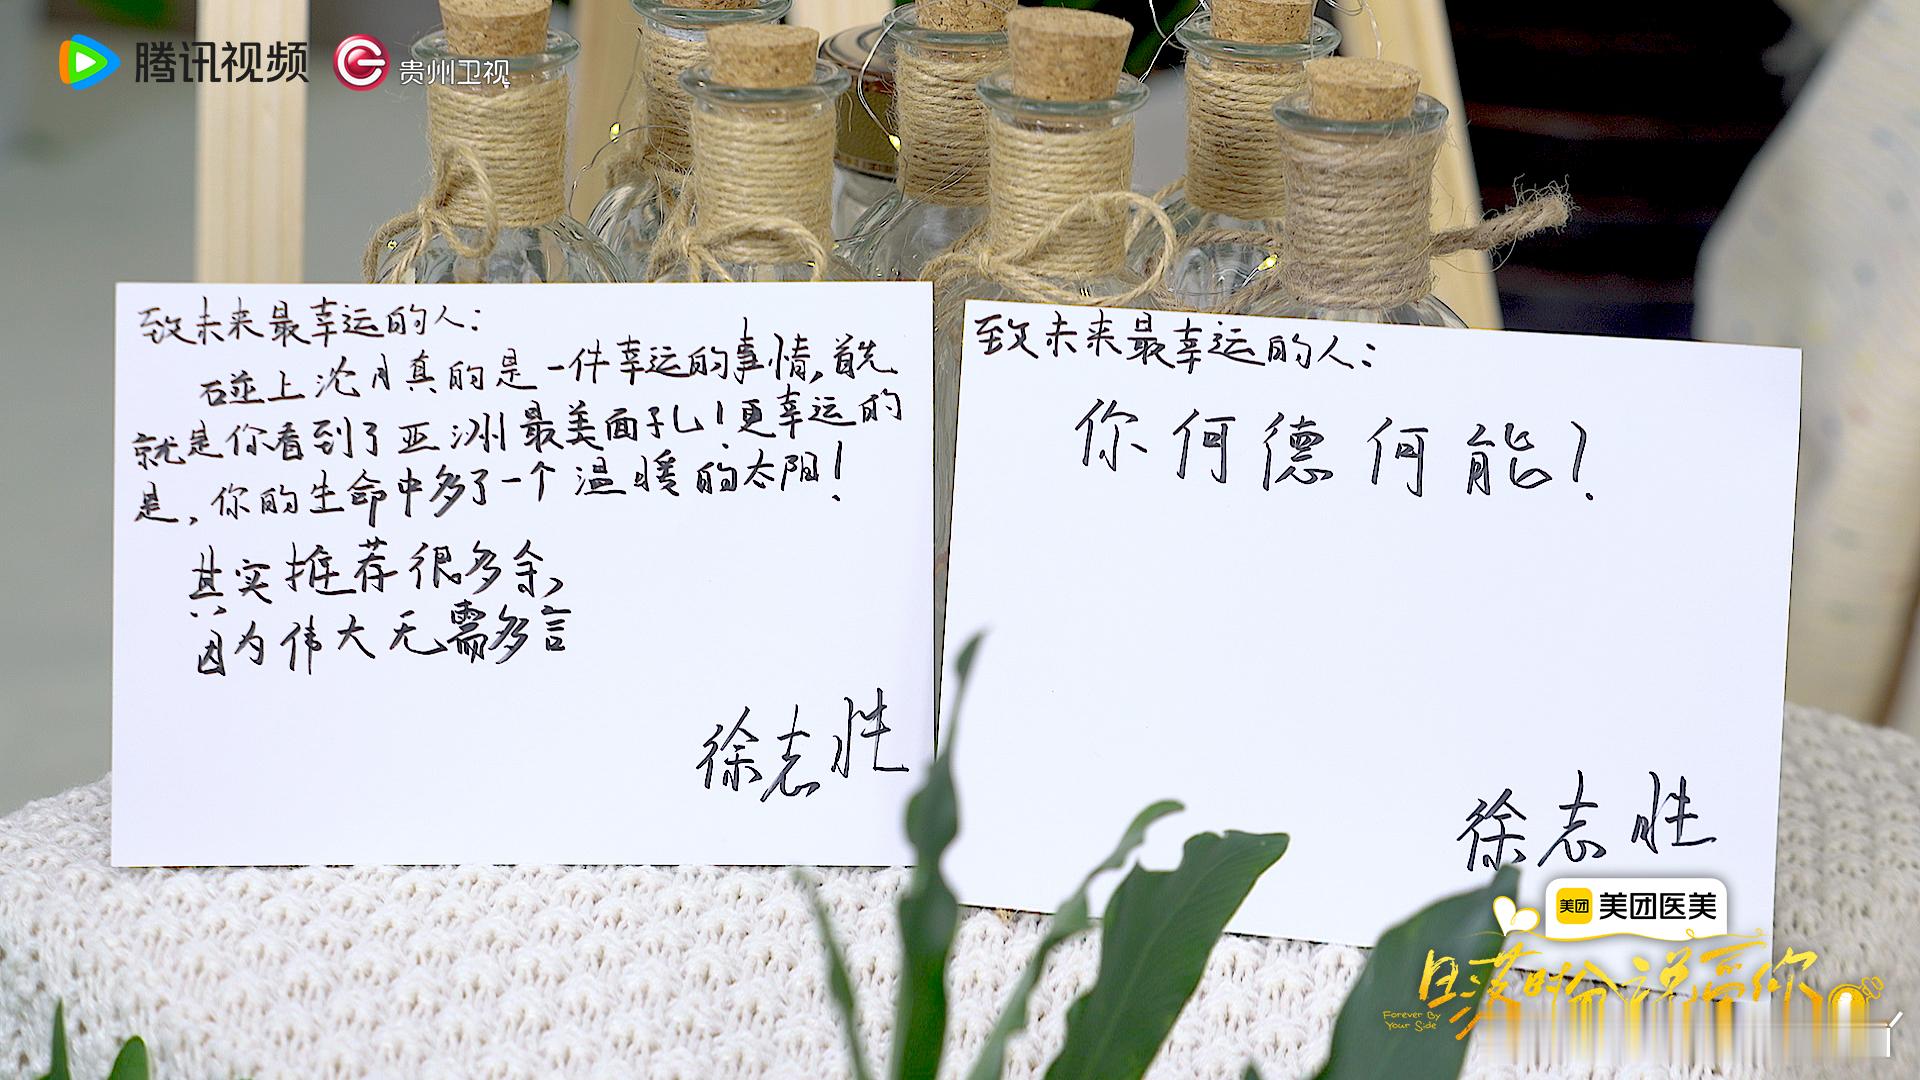 腾讯视频
贵州卫视
致未来最幸运的人:
碰上沈月真的是一件幸运的事情,首先
就是你看到了亚洲最美面孔!更幸运的
是,你的生命中多了一个温暖的太阳!
其实推荐很多余,
因为伟大无需多言
徐志胜
致未来最幸运的人:
你何德何能!
徐志胜
美团 美团医美
日落时分说爱你
Forever By
Your Side